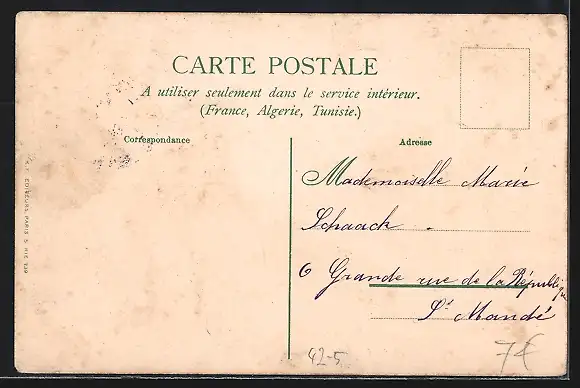 CARTE POSTALE
A utiliser seulement dans le service intérieur.
(France, Algerie, Tunisie.)
Correspondance
Adresse
Mademoiselle Marie
Schaack
6 Grande rue de la République
St Mandé
EDITEURS, PARIS
42-5
7€